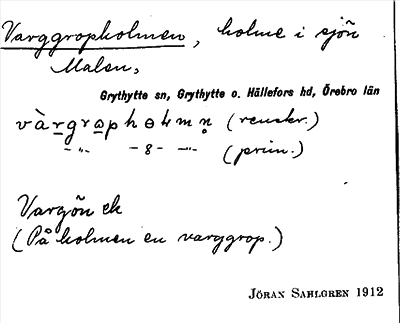 Varggropholmen, holme i sjön
Malen,
Grythytte sn, Grythytte o. Hällefors hd, Örebro län
(renskr.)
– " – – 8 – – " – (prim.)
Vargön ek
(På holmen en varggrop.)
JÖRAN SAHLGREN 1912